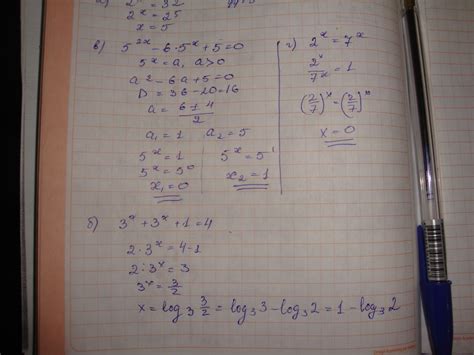 а) 2ˣ = 32
2ˣ = 2⁵
x = 5
в) 5²ˣ - 6·5ˣ + 5 = 0
5ˣ = a, a>0
a² - 6a + 5 = 0
D = 36 - 20 = 16
a = (6±4)/2
a₁ = 1 a₂ = 5
5ˣ = 1 5ˣ = 5¹
5ˣ = 5⁰ x₂ = 1
x₁ = 0
г) 2ˣ = 7ˣ
2ˣ/7ˣ = 1
(2/7)ˣ = (2/7)⁰
x = 0
б) 3ˣ + 3ˣ + 1 = 4
2·3ˣ = 4-1
2·3ˣ = 3
3ˣ = 3/2
x = log₃ 3/2 = log₃3 - log₃2 = 1 - log₃2